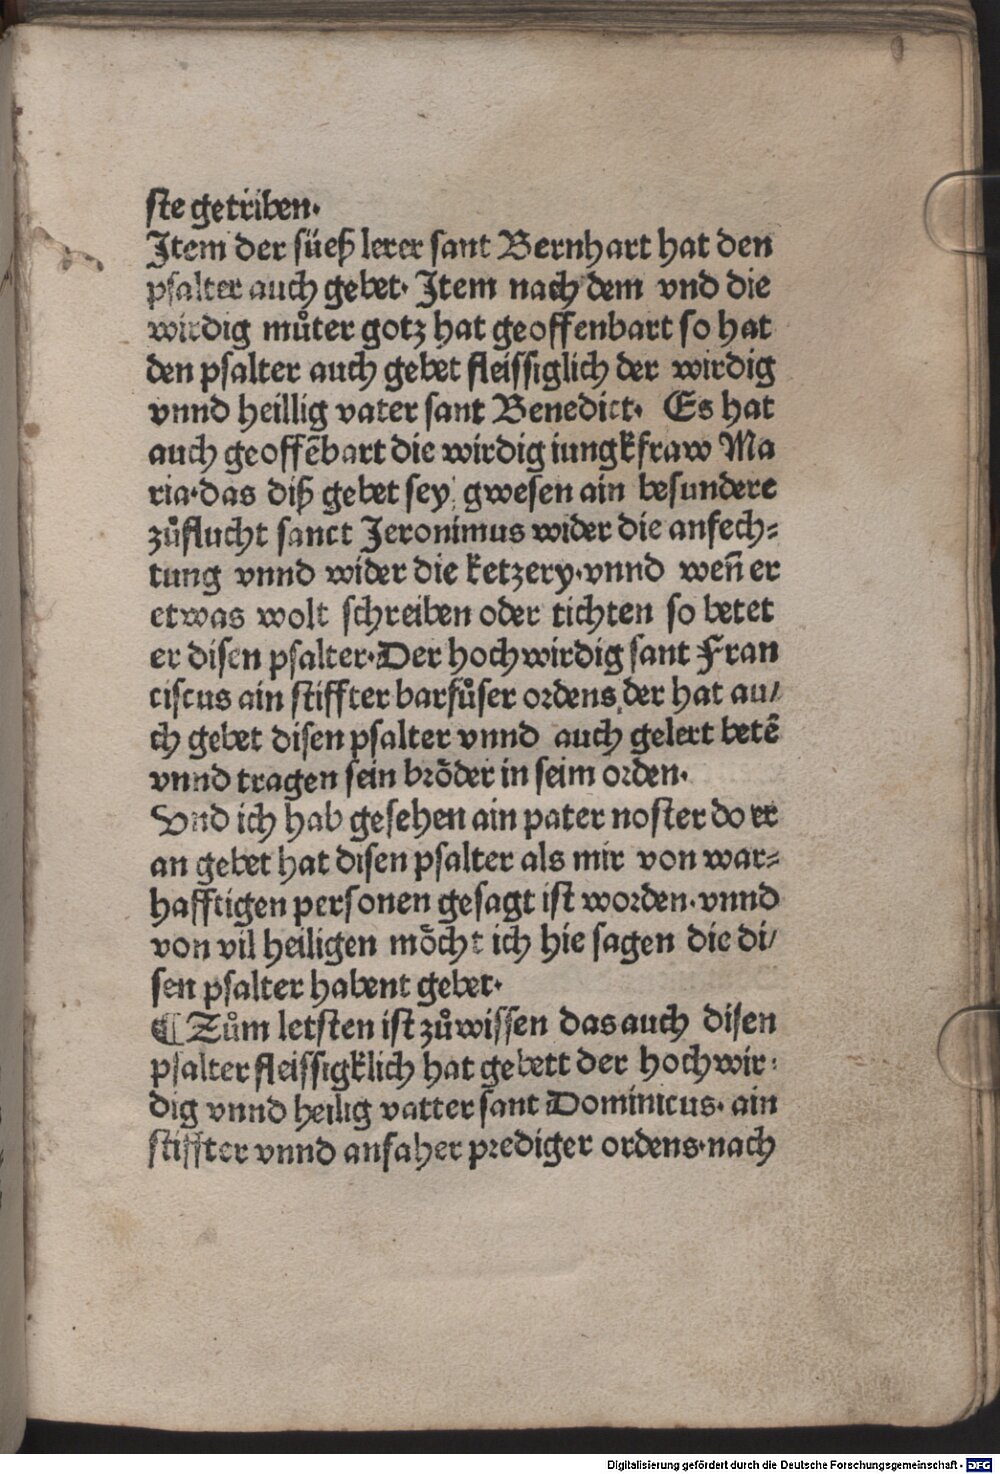 ste getriben·
Item der süeß lerer sant Bernhart hat den
psalter auch gebet· Item nach dem vnd die
wirdig muͦter gotz hat geoffenbart so hat
den psalter auch gebet fleissiglich der wirdig
vnnd heillig vater sant Benedict· Es hat
auch geoffēbart die wirdig iungkfraw Ma
ria·das diß gebet sey gwesen ain besundere
zuͦflucht sanct Jeronimus wider die anfech⸗
tung vnnd wider die ketzery·vnnd weñ er
etwas wolt schreiben oder tichten so betet
er disen psalter·Der hochwirdig sant Fran
ciscus ain stiffter barfuͦser ordens der hat au/
ch gebet disen psalter vnnd auch gelert betē
vnnd tragen sein broͤder in seim orden·
Vnd ich hab gesehen ain pater noster do er
an gebet hat disen psalter als mir von war⸗
hafftigen personen gesagt ist worden·vnnd
von vil heiligen moͤcht ich hie sagen die di/
sen psalter habent gebet·
¶ Zuͦm letsten ist zuͦwissen das auch disen
psalter fleissigklich hat gebett der hochwir⸗
dig vnnd heilig vatter sant Dominicus· ain
stiffter vnnd anfaher prediger ordens·nach
Digitalisierung gefördert durch die Deutsche Forschungsgemeinschaft - DFG